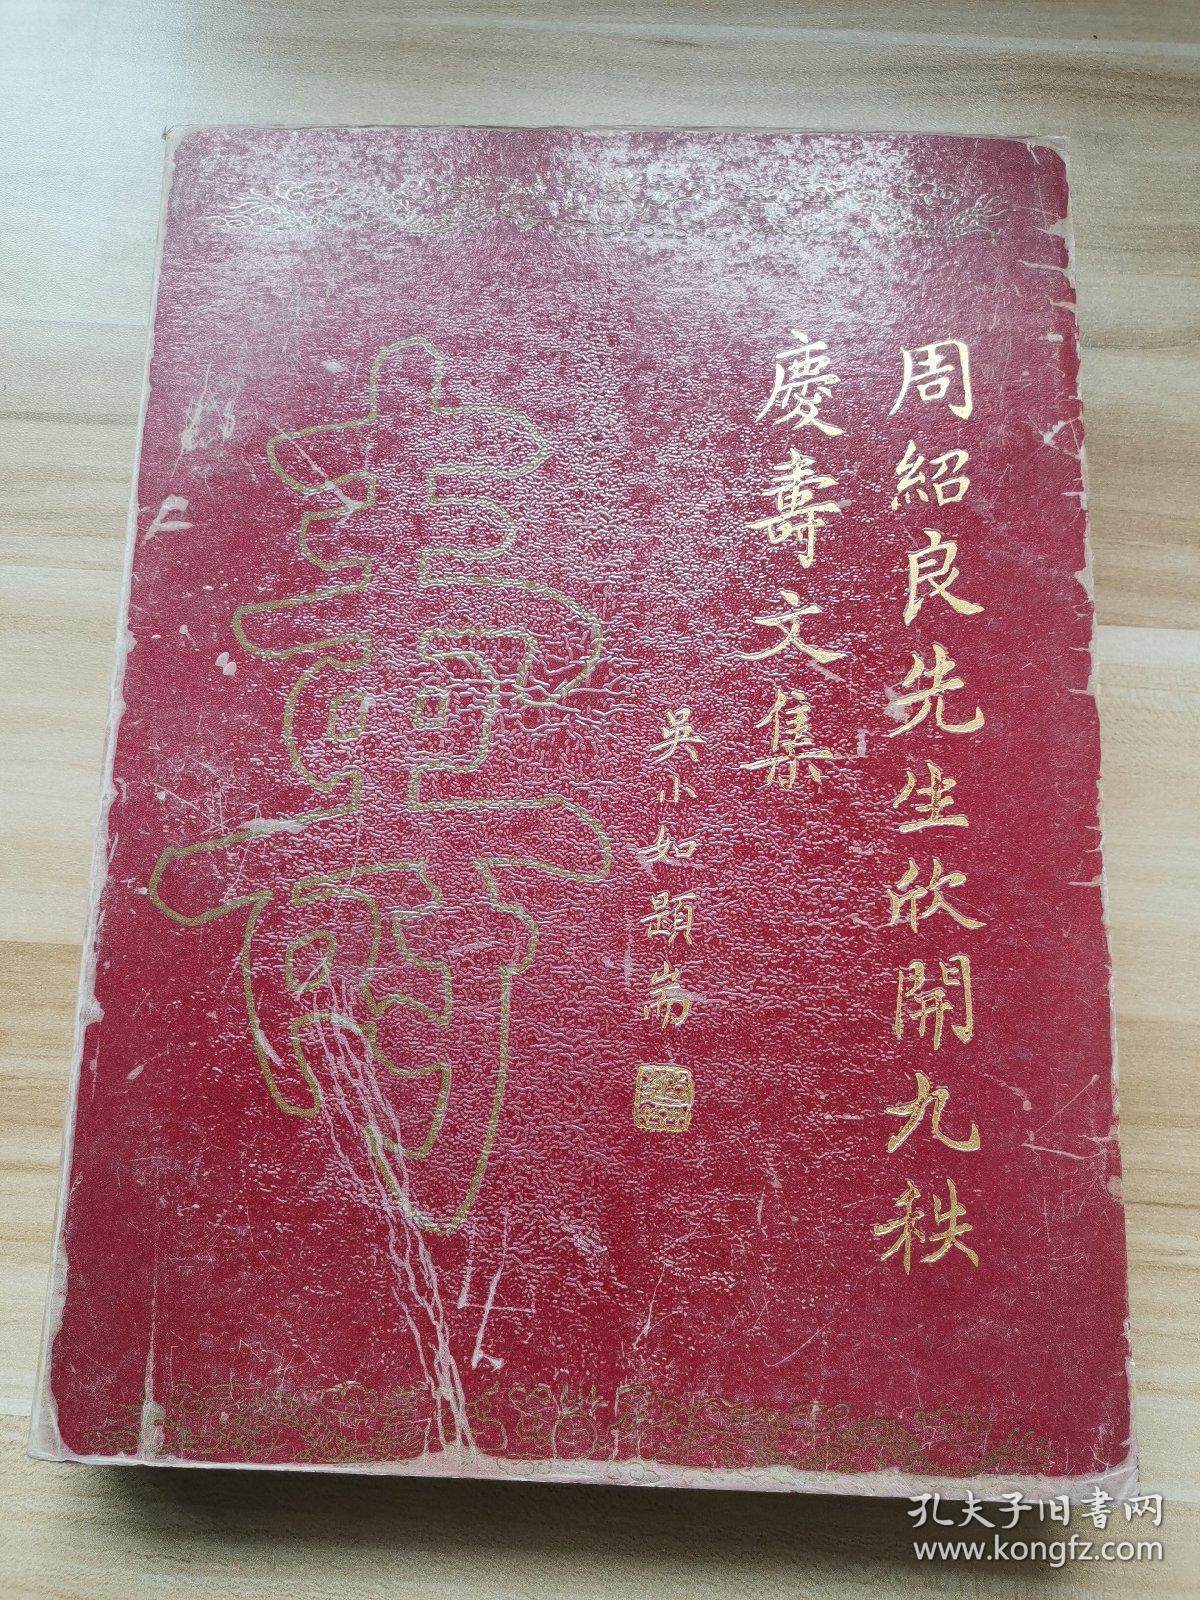 周紹良先生欣開九秩
慶壽文集
吳小如題耑
壽
孔夫子旧书网
www.kongfz.com